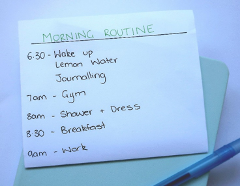 MORNING ROUTINE
6:30 - Wake up
Lemon Water
Journalling
7am - Gym
8am - Shower + Dress
8:30 - Breakfast
9am - Work